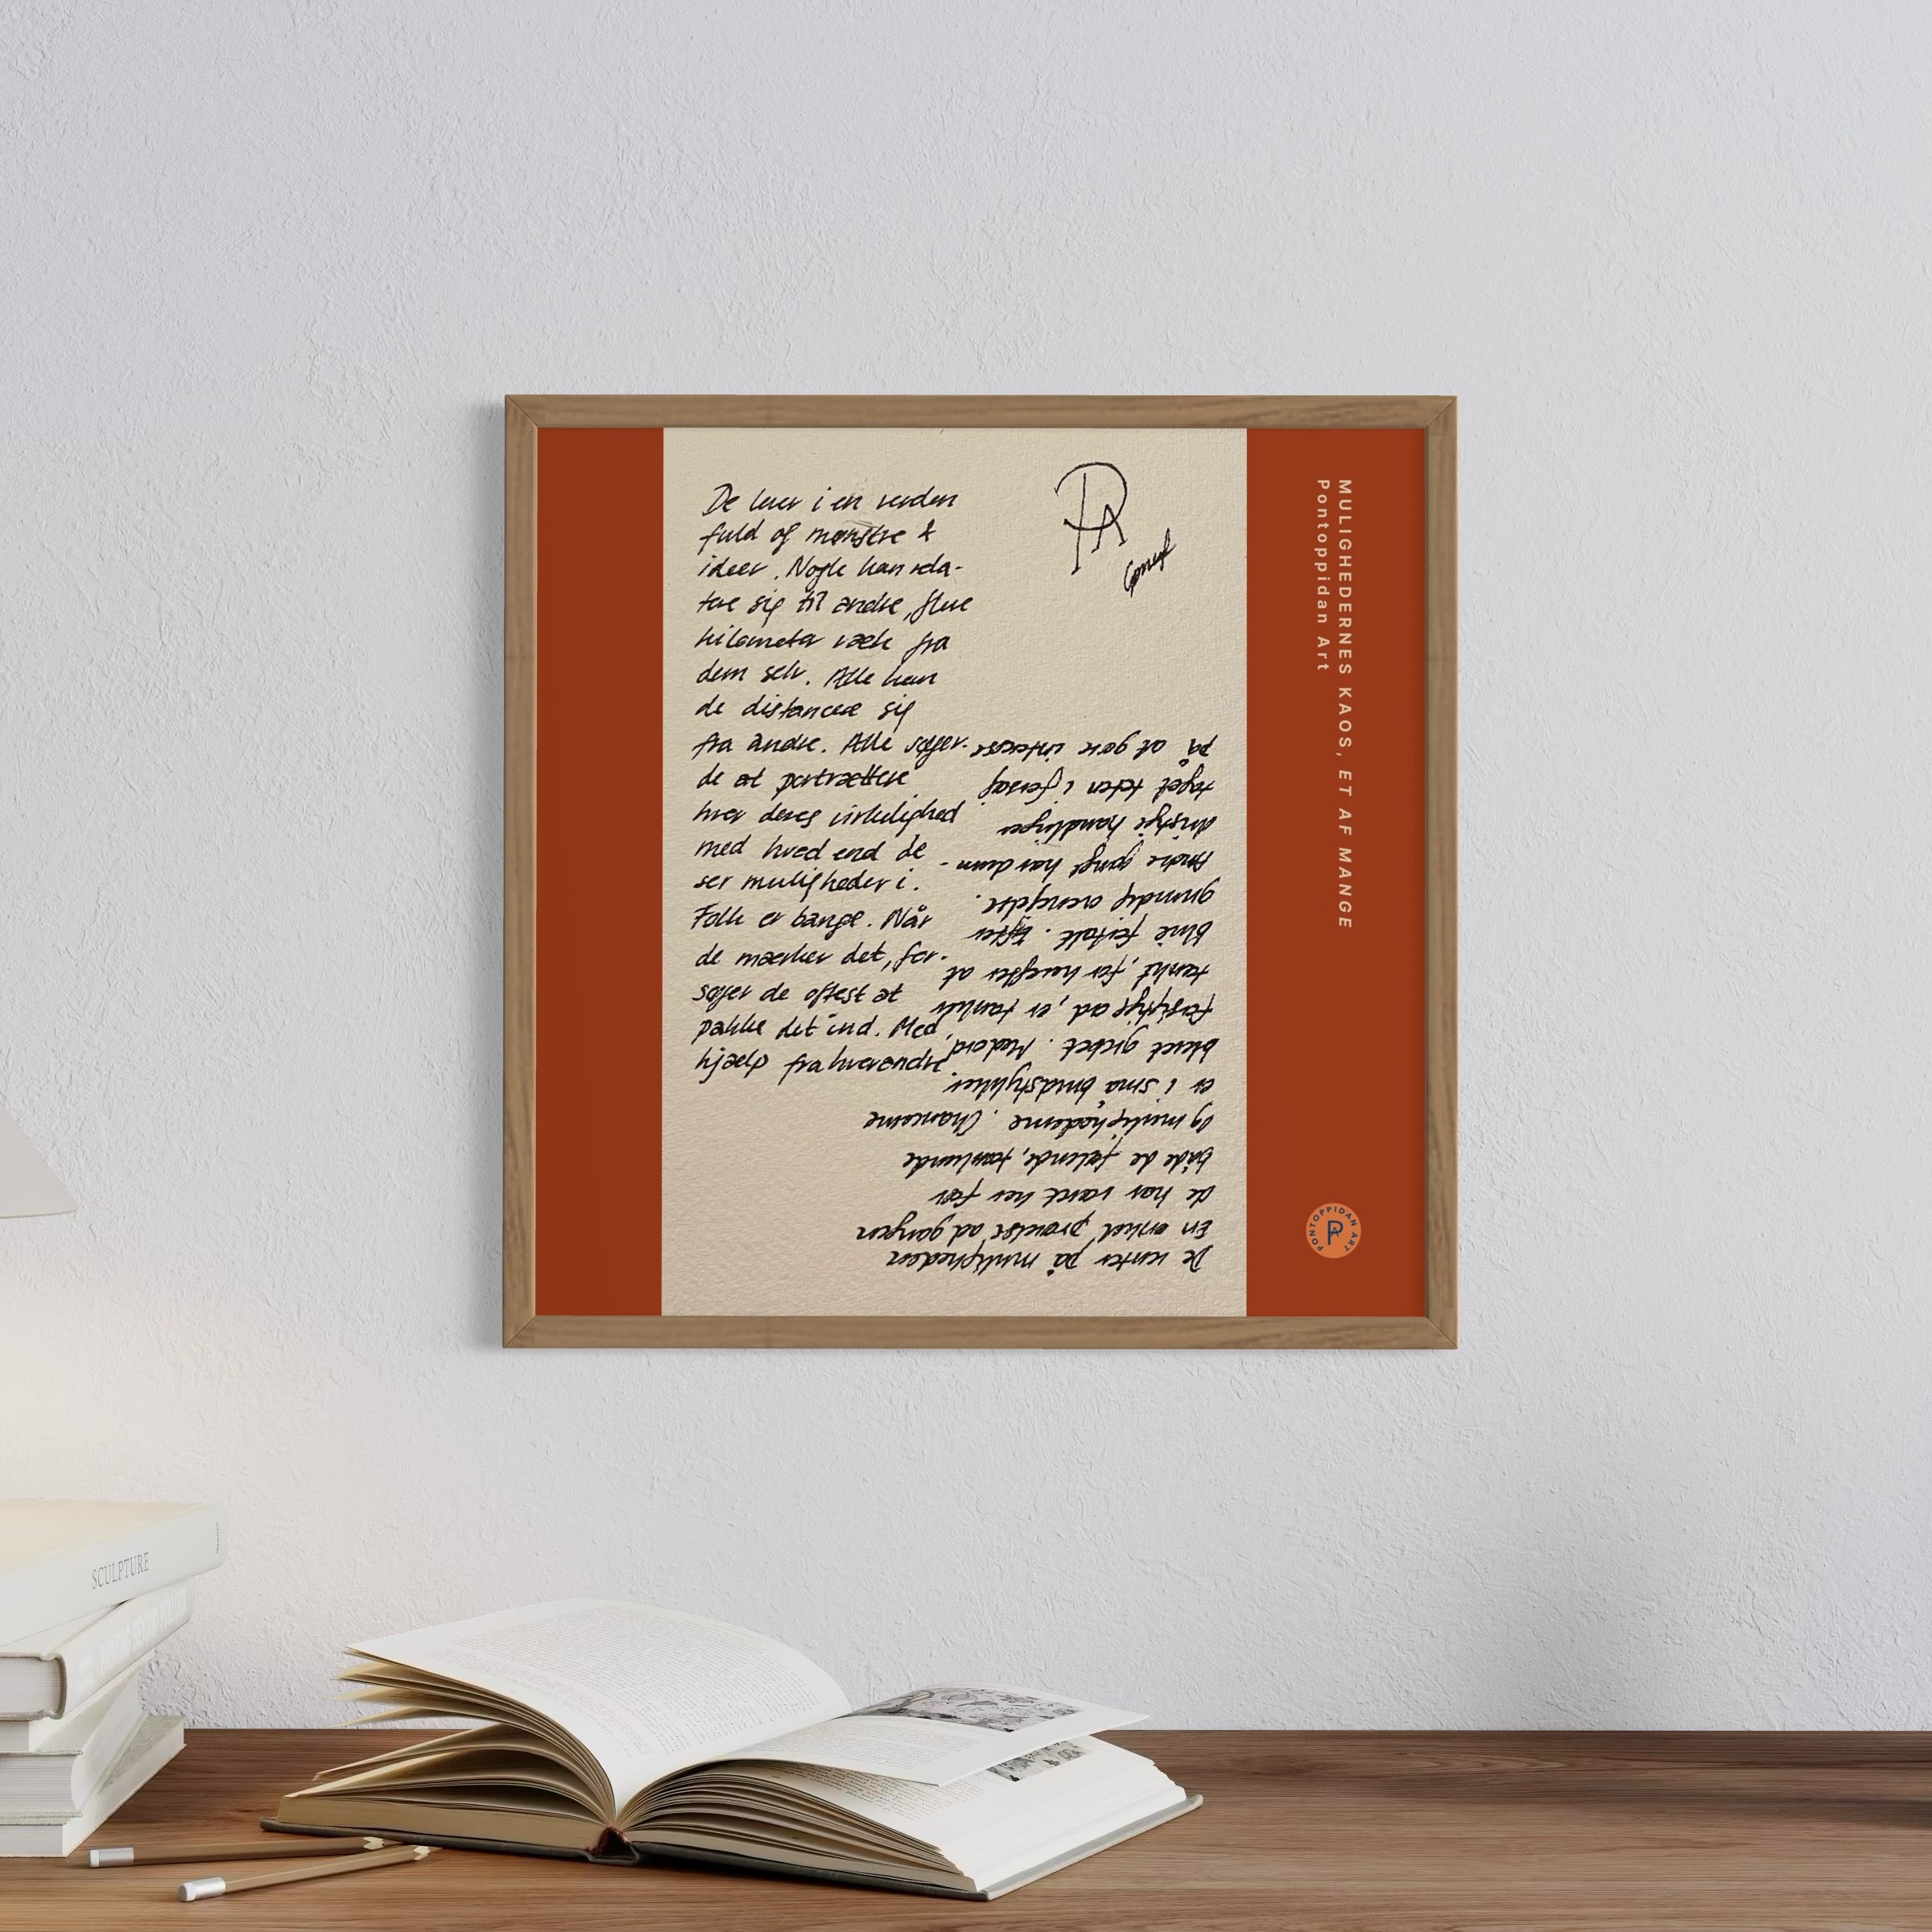 De lever i en verden
fuld af mønstre &
ideer. Nogle kan rela-
tere sig til andre, flere
kilometer væk fra
dem selv. Alle kan
de distancere sig
fra andre. Alle søger
de at portrættere
hver deres virkelighed
med hvad end de
ser muligheder i.
Folk er bange. Når
de mærker det, for-
søger de oftest at
pakke det ind. Med
hjælp fra hverandre.
De venter på muligheden
En enkel prøvelse ad gangen
de har været her før
både de følende, tænkende
og mulighederne. Chancerne
er i små brudstykker
blevet grebet. Modord,
forsigtige ad, er tanker
tænkt, for herefter at
blive fortalt. Efter
grundig overvejelse.
Andre gange har dumm-
dristige handlinger
taget teten i forsøg
på at gøre interesse
PA
MULIGHEDERNES KAOS, ET AF MANGE
Pontoppidan Art
PONTOPPIDAN ART
PA
SCULPTURE